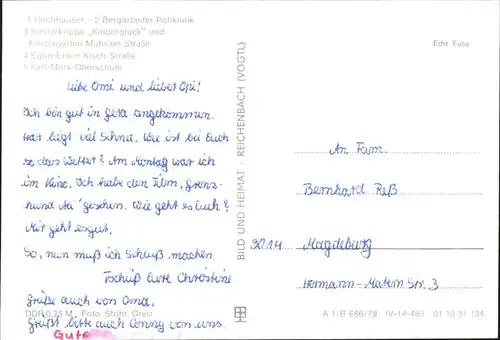 1 Hochhäuser - 2 Bergarbeiter-Poliklinik
3 Kinderkrippe „Kinderglück" und
Kindergarten Mühsam-Straße
4 Egon-Erwin-Kisch-Straße
5 Karl-Marx-Oberschule
Liebe Omi und lieber Opi!
Ich bin gut in Gera angekommen.
Hier liegt viel Schnee. Wie ist bei Euch
so das Wetter? Am Montag war ich
im Kino. Ich habe den Film „Grenz-
hund Ala" gesehen. Wie geht es Euch?
Mir geht es gut.
So, nun muß ich Schluß machen.
Tschüß Eure Christine
Grüße auch von Oma.
Grüßt bitte auch Conny von uns.
DDR 0,25 M Foto Stöhr, Greiz
Gut
BILD UND HEIMAT · REICHENBACH (VOGTL)
Echt Foto
An Fam.
Bernhard Reß
3014 Magdeburg
Hermann-Matern Str. 3
A 1/B 686/79 IV-14-483 01 10 31 134